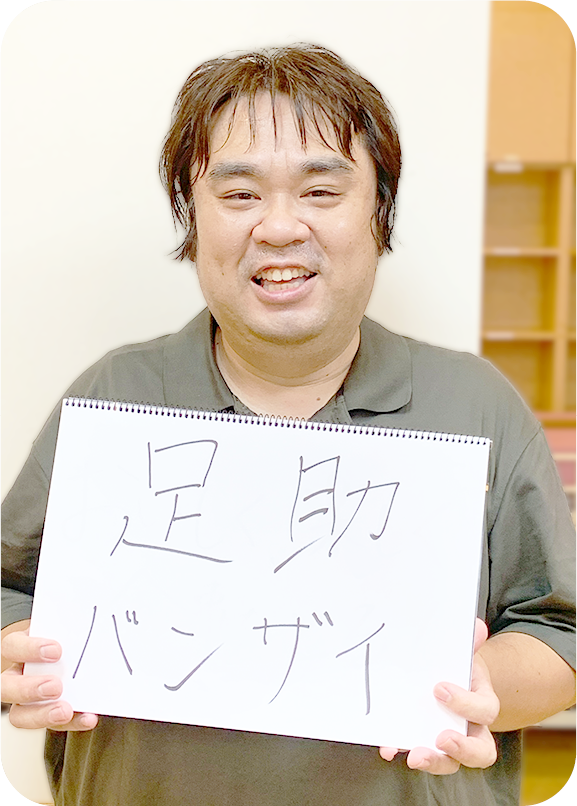 足助
バンザイ